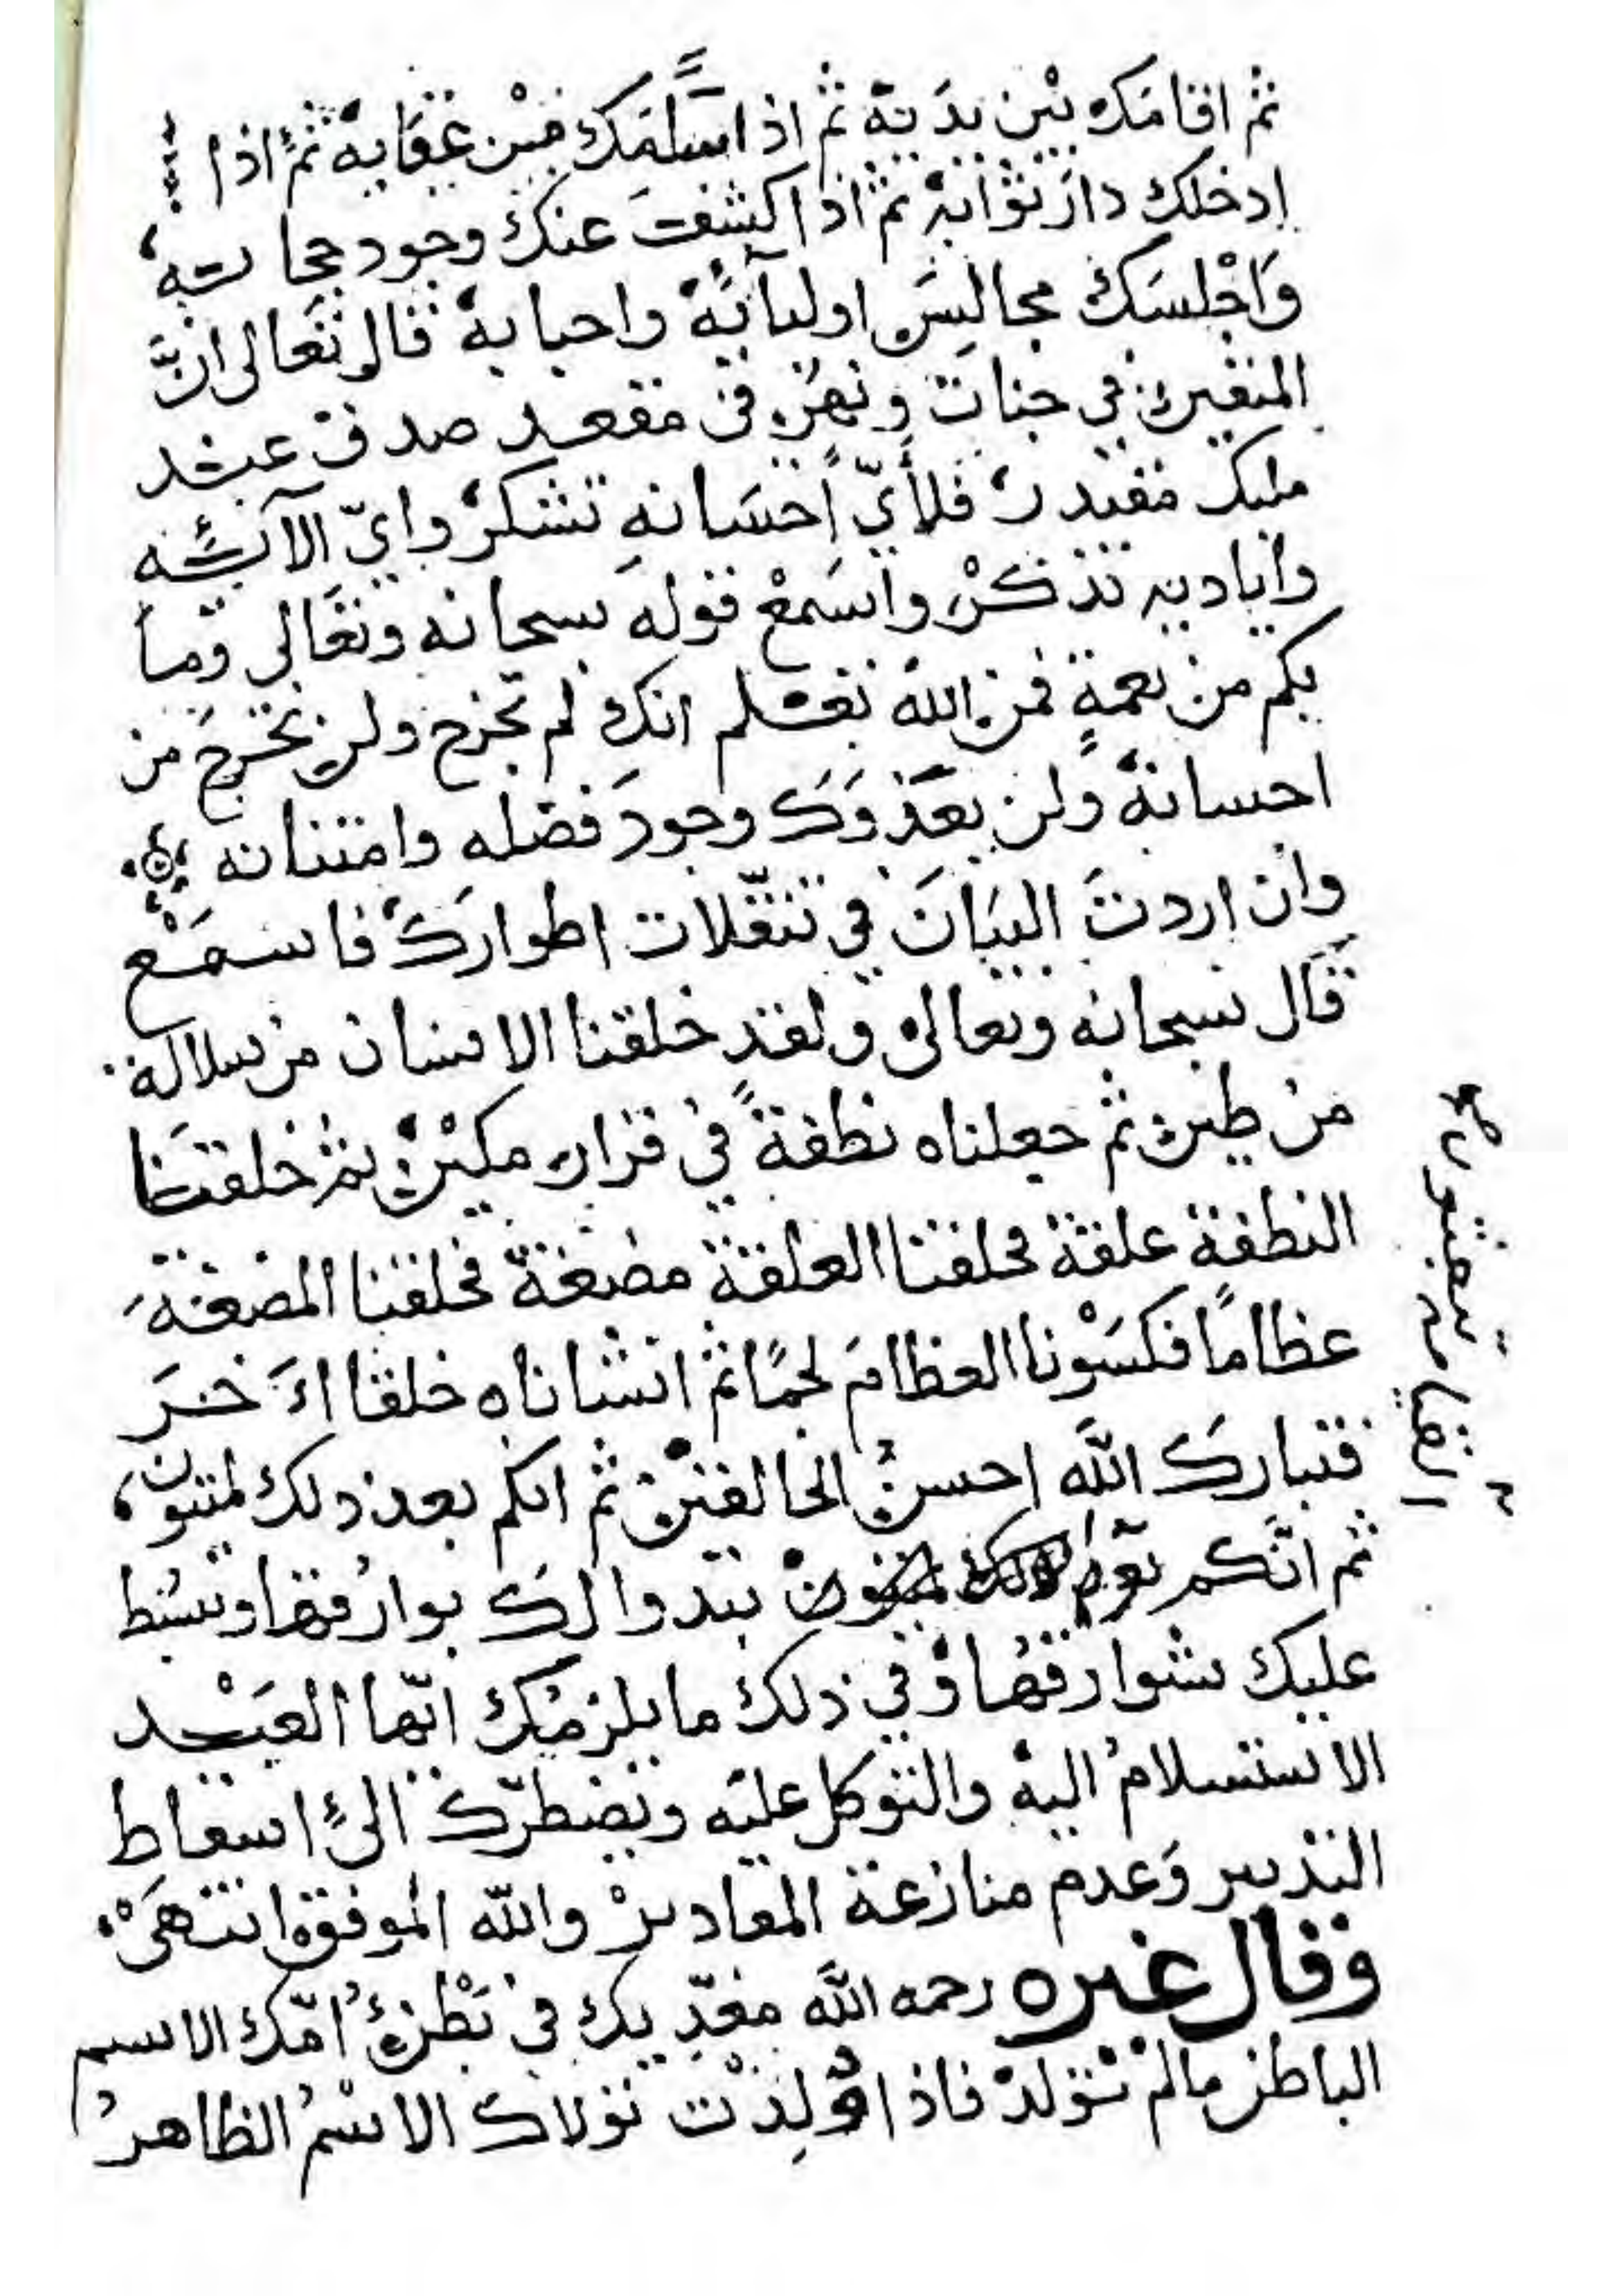 ثم اقامك بين يديه ثم اذا سلّمك من عقابه ثم اذا
ادخلك دار ثوابه ثم اذا كشف عنك وجود حجابه
وَاجْلسَك مجالسَ اوليآئه واحبابه قال تعالى انَّ
المتقين في جنات ونهر في مقعد صدق عند
مليك مقتدر فلأيّ اِحسَانهِ تشكر وايّ الآئه
واياديه تذكر واسمعْ قوله سبحانه وتعالى وما
بكم من نعمةٍ فمن الله تعلم انك لم تخرج ولن تخرج من
احسانه ولن يعدوَك وجودَ فضله وامتنانه
وان اردتَ البيَانَ في تنقّلات اطوارك فاسمَع
قال سبحانه وتعالى ولقد خلقنا الانسان من سلالة
من طين ثم جعلناه نطفةً في قرار مكين ثم خلقنا
النطفة علقة فخلقنا العلقة مضغة فخلقنا المضغة
عظامًا فكسَوْنا العظامَ لحمًا ثم انشاناه خلقا اخرَ
فتباركَ اللَّه احسنُ الخالقين ثم انكم بعد ذلك لميتون
ثم انَّكم يوم
القيامة تبعثون صح
تبدوا لك بوارقها وتبسُط
عليك شوارقهُا وفي ذلك ما يلزمُك ايّها العَبْد
الاستسلامُ اليه والتوكل عليه ويضطرّك الى اسقاط
التدبير وَعدم منازعة المقادير واللّه الموفق انتهى
وقال غيره رحمه اللَّه مغذّيك في بَطْن اُمّك الاسم
الباطن مالم تولد فاذا وُلِدْت تولاك الاسْمُ الظاهرُ